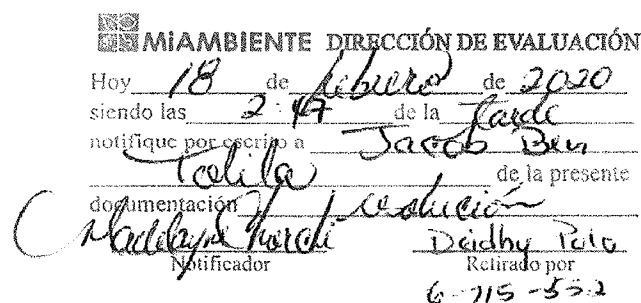 MiAMBIENTE DIRECCIÓN DE EVALUACIÓN
Hoy 18 de febrero de 2020
siendo las 2:47 de la tarde
notifique por escrito a Jacob Ben
Tolila de la presente
documentación resolución
Notificador Deidhy Polo
Retirado por
6-715-552